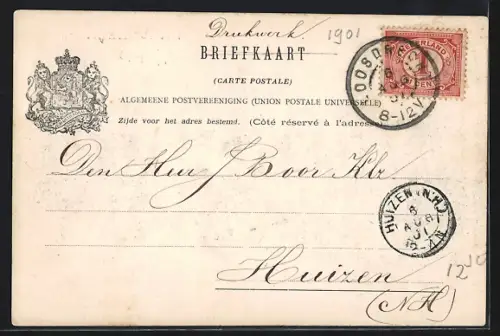 Drukwerk
1901
BRIEFKAART
(CARTE POSTALE)
ALGEMEENE POSTVEREENIGING (UNION POSTALE UNIVERSELLE)
Zijde voor het adres bestemd. (Côté réservé à l'adresse)
8-12V
Den Heer J Boor Klz
HUIZEN (N.H.)
6
AUG
01
Huizen
(NH)